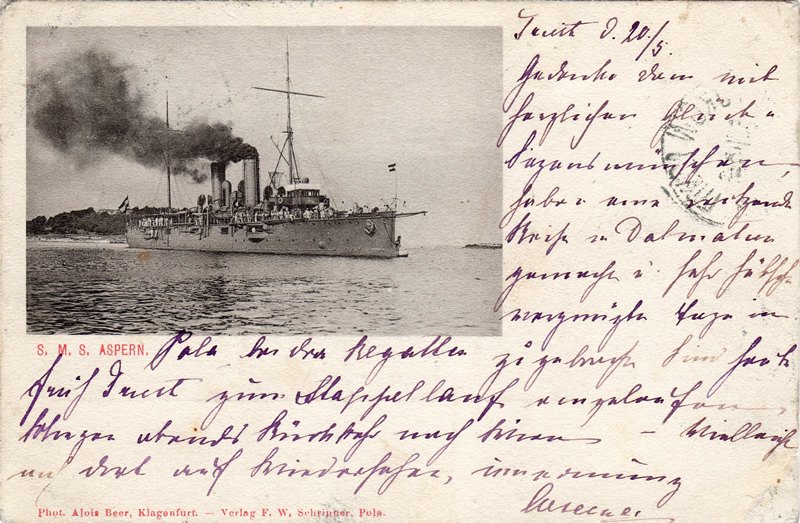 Triest d. 20/5.
Gedenke dem mit
herzlichen Glück u
Segenswünschen,
habe eine reitzende
Reise n Dalmatien
gemacht u. sehr hübsche
vergnügte Tage in
S. M. S. ASPERN.
Pola bei den Regatten zugebracht. Sind heute
früh Triest zum Stappellauf eingelaufen,
Morgen abends Rückkehr nach Wien – Vielleicht
auf Wiedersehen,
Phot. Alois Beer, Klagenfurt. — Verlag F. W. Schrinner, Pola.